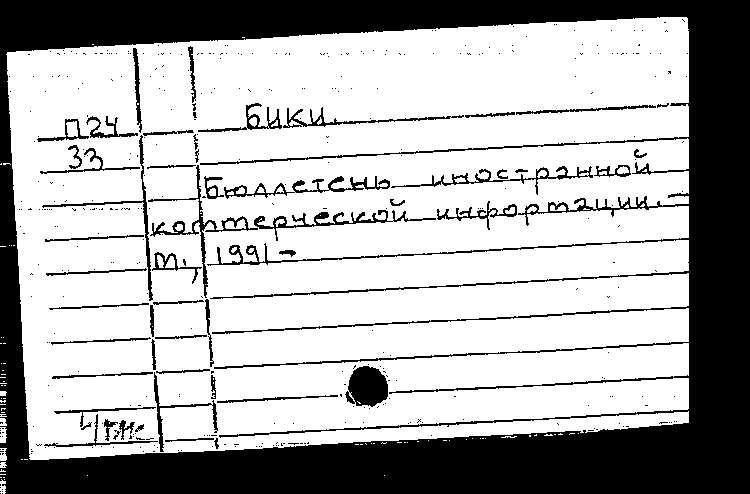 П24 БИКИ.
33
Бюллетень иностранной
коммерческой информации. –
М., 1991 –